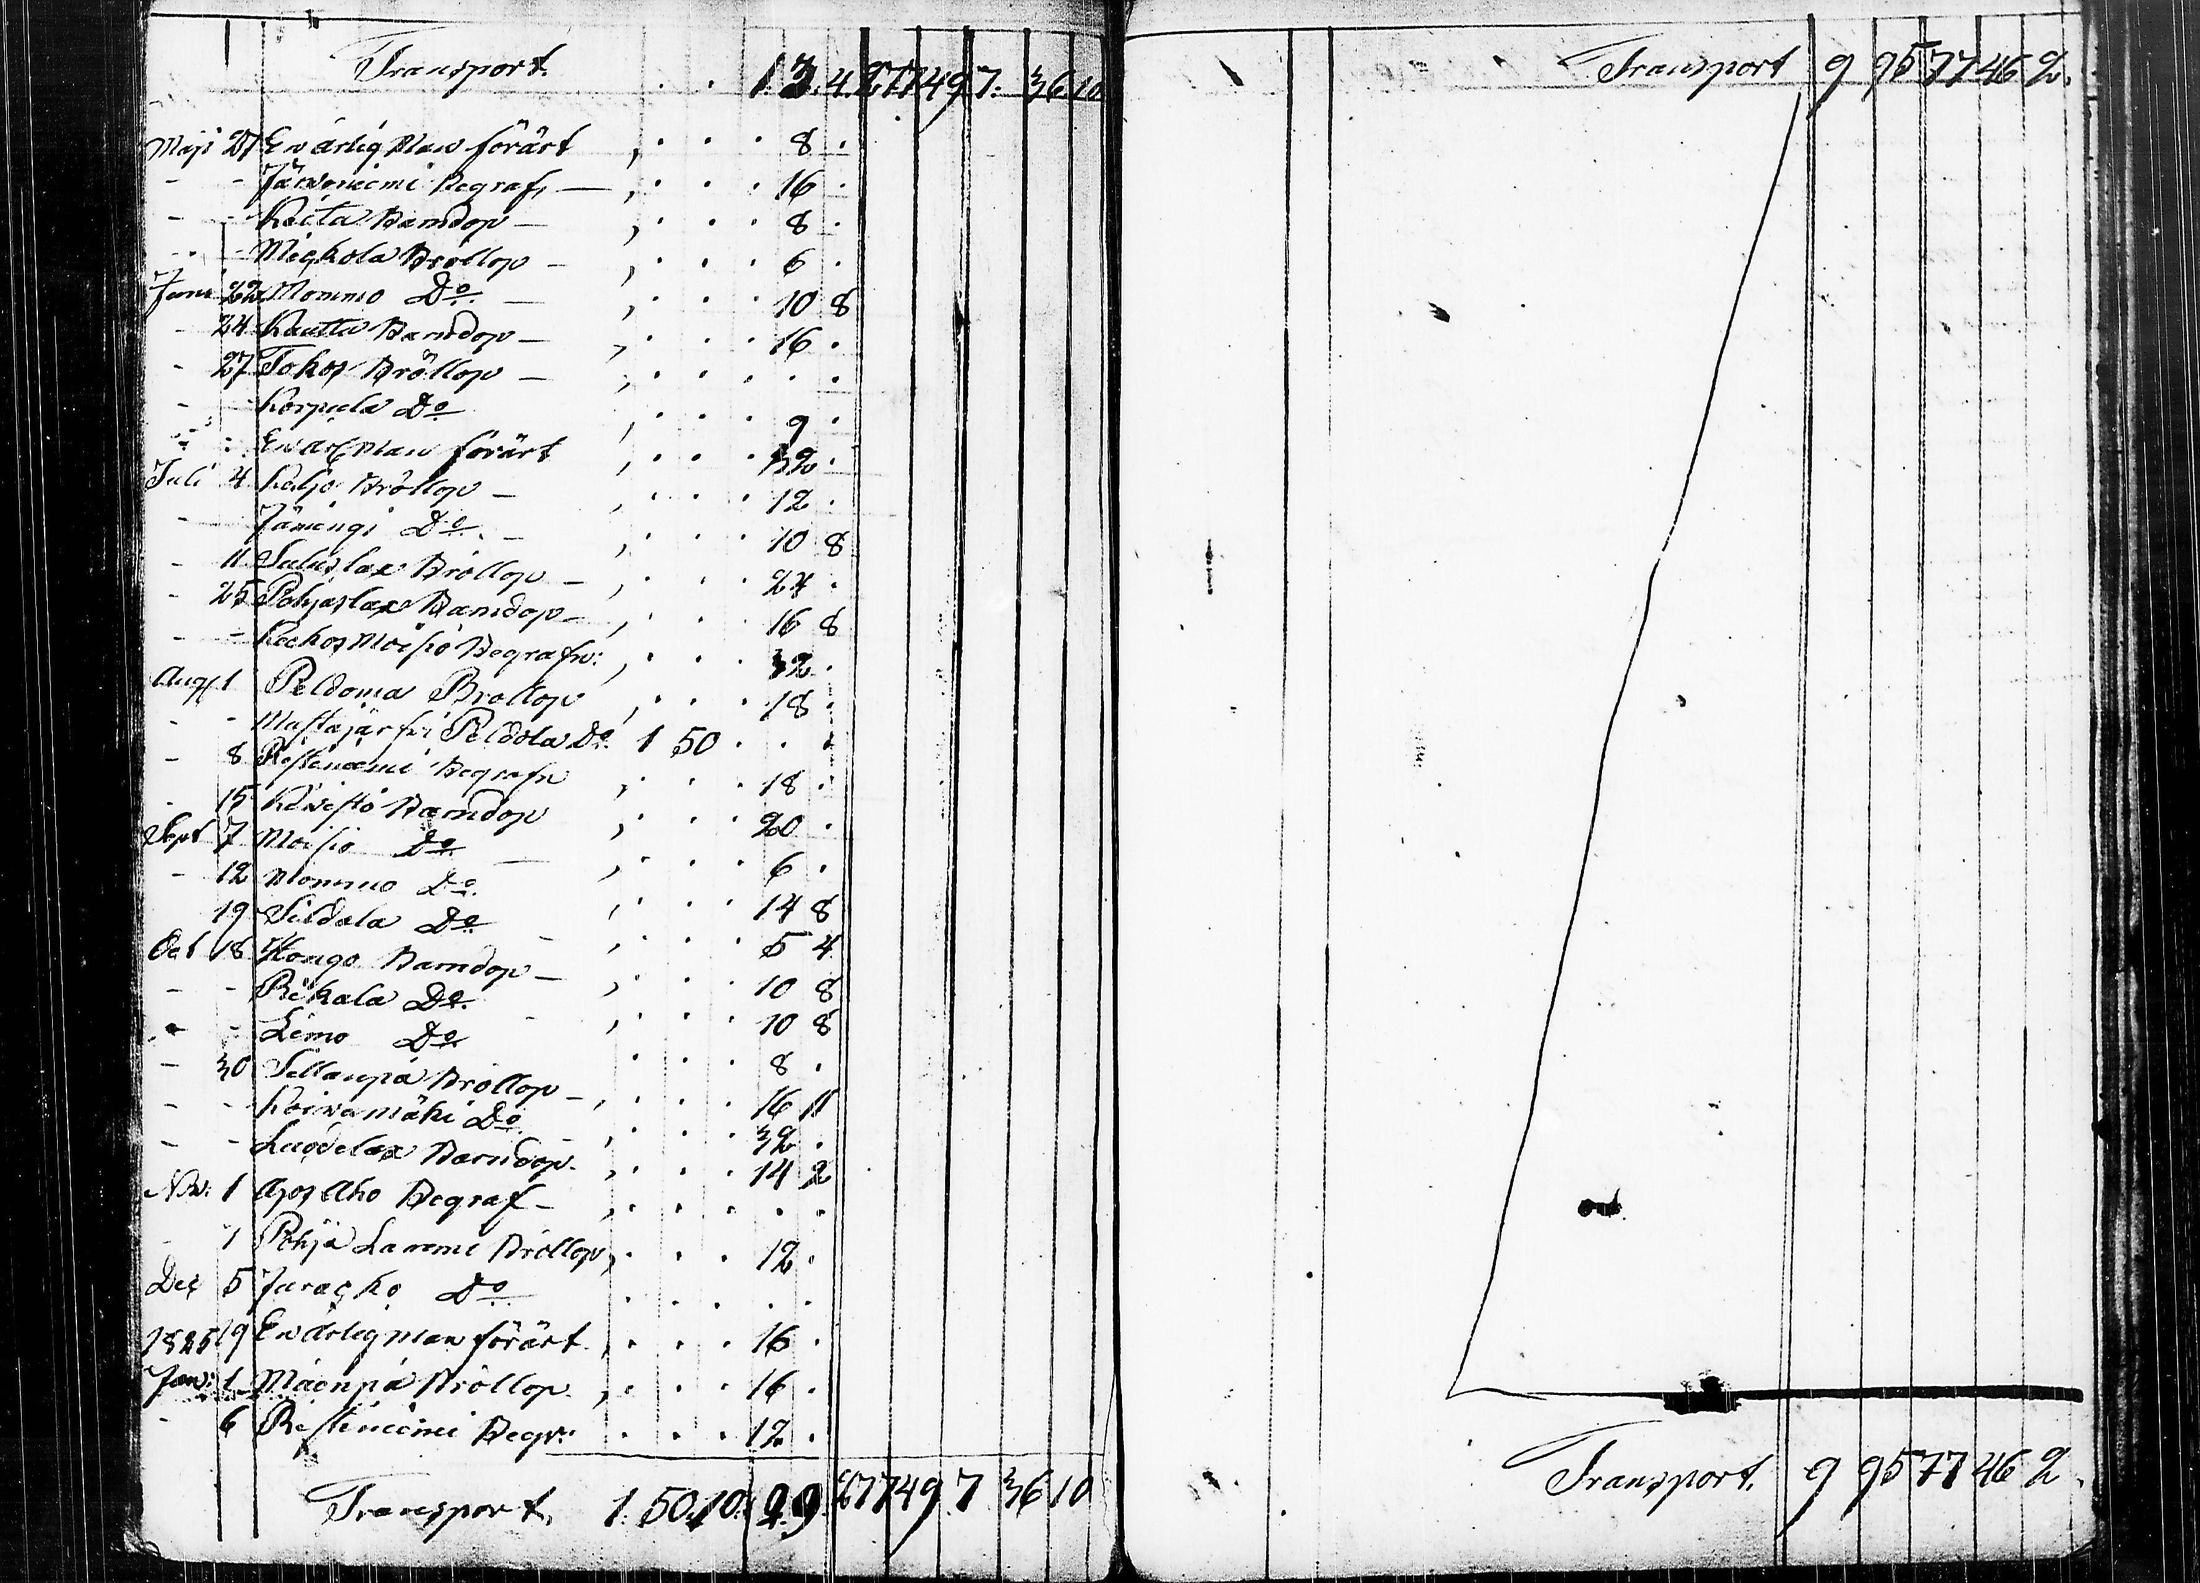 Transport. 1. 3. 4. 277 49 7. 36 10.
Maji 27 En ärlig Man förärt 8
- - Järveniemi Begraf, — 16
- - Keita Barndop — 8
- - Mighola Bröllop — 6
Juni 22 Mommo Do — 10 8
- 24 Kautta Barndop — 16
- 27 Tokoj Bröllop —
- - Korpula Do 9
En ärl Man förärt 32
Juli 4 Keljo Bröllop — 12
- Jämingi Do. — 10 8
- 11 Saluslax Bröllop — 24
- 25 Pohjaslax Barndop — 16 8
- - Moisio Begrafn: 32
Aug 1 Peldoma Bröllop 18
- - Mustajärfvi Peldola Do. 1 50
- 8 Ristiniemi Begrafn 18
- 15 Kivistö Barndop 20
Sept 7 Moisio Do — 6
- 12 Mommo Do. 14 8
19 Sildala Do — 5 4
Oct 18 Hongo Barndop — 10 8
- - Rikala Do. - 10 8
- - Limo Do 8
- 30 Sillanpä Bröllop — 16 11
- - Koivamäki Do — 32
- - Luodelax Barndop. 14 2
Nov: 1 Aho Begraf —
1 Pohja Lammi Bröllop 12
Dec 5 Juracko Do
1825 19 En ärlig man förärt 16
Jan: 1 Mäenpä Bröllop 16
- 6 Ristiniemi Begr: 12
Transport. 1. 50. 10. 29. 277 49 7 36 10
Transport 9 95 77 46 2.
Transport. 9 95 77 46 2